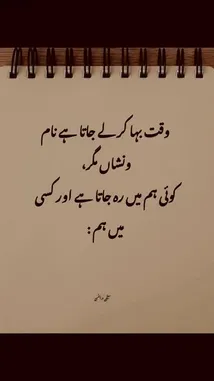 وقت بہا کر لے جاتا ہے نام
ونشاں مگر،
کوئی ہم میں رہ جاتا ہے اور کسی
میں ہم :